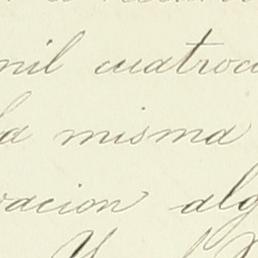 mil cuatroc
la misma
racion alg